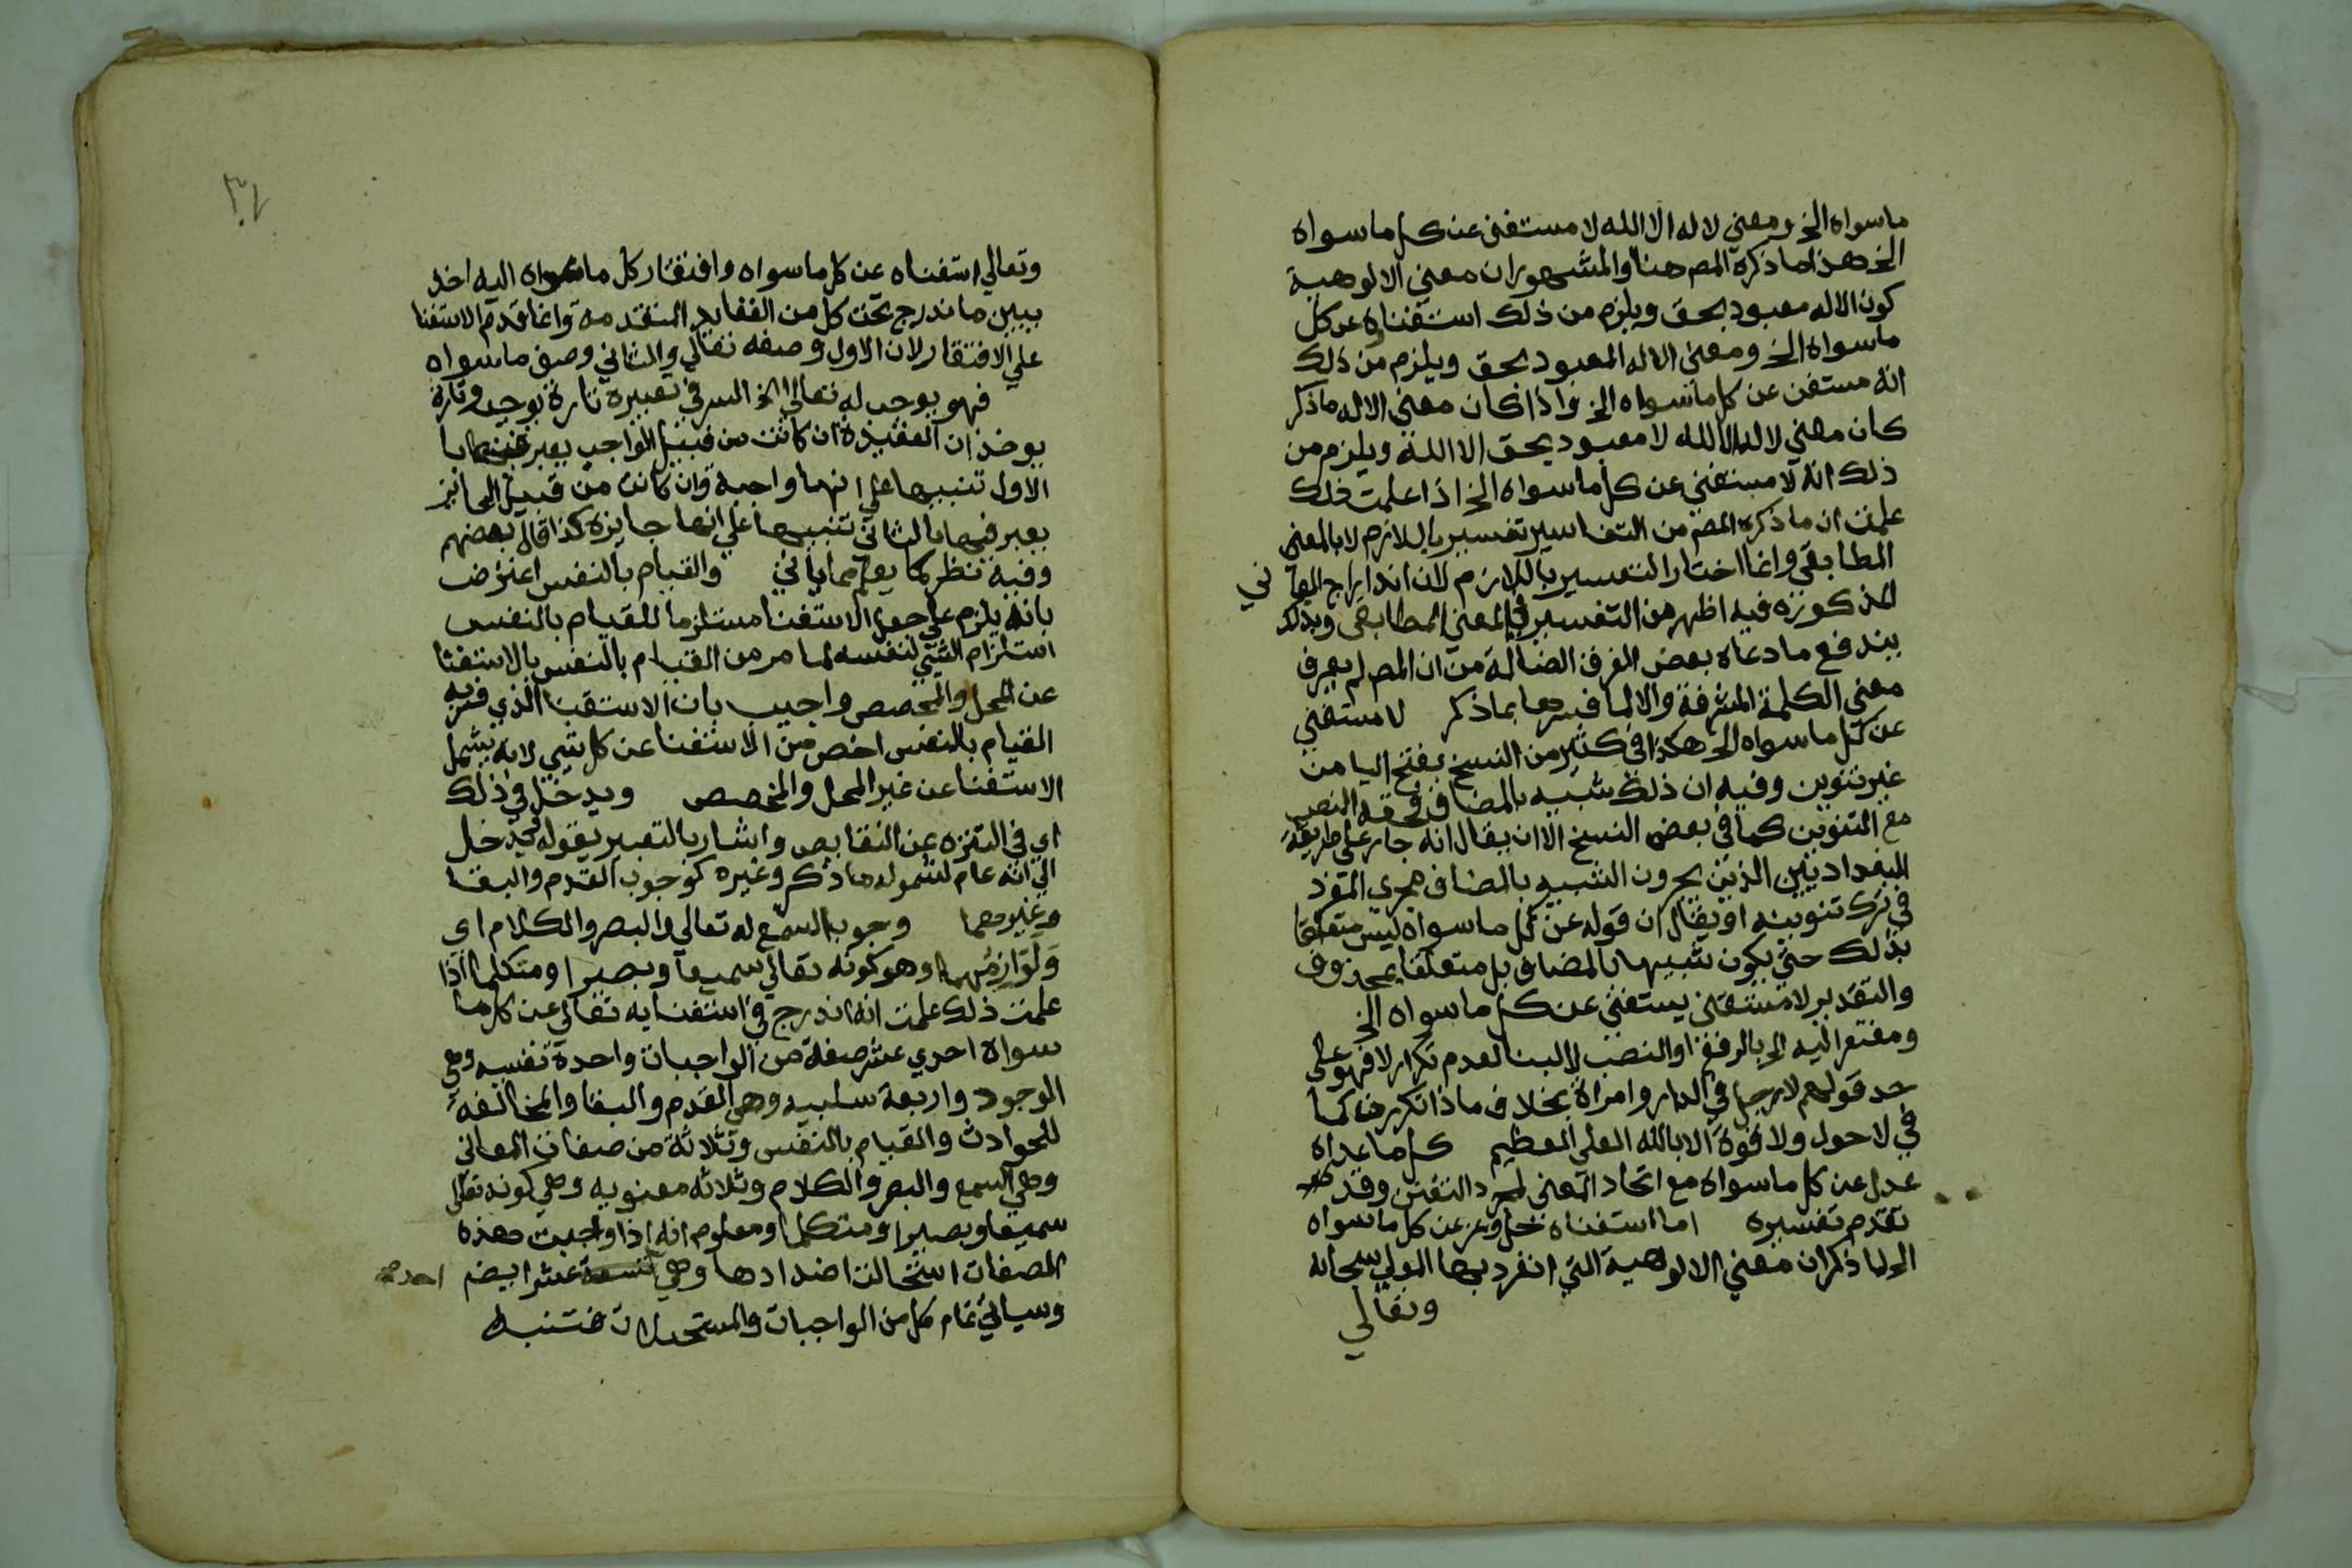 ماسواه الخ ومعني لا اله الا الله لا مستغني عن كل ما سواه
الخ هذا ما ذكره المص هنا والمشهور ان معني الالوهية
كون الاله معبود بحق ويلزم من ذلك استغناوه عن كل
ماسواه الخ ومعني الاله المعبود بحق ويلزم من ذلك
انه مستغن عن كل ما سواه الخ واذا كان معني الاله ما ذكر
كان معني لا اله الا الله لا معبود بحق الا الله ويلزم من
ذلك انه لا مستغني عن كل ما سواه الخ اذا علمت ذلك
علمت ان ما ذكره المص من التفاسير تفسير باللازم لا بالمعني
المطابقي وانما اختار التفسير باللازم لان اندراج المعاني
المذكورة فيه اظهر من التفسير بالمعني المطابقي وبذلك
يندفع ما دعاه بعض الفرق الضالة من ان المص لم يعرف
معني الكلمة المشرفة والا لما فسرها بما ذكر لا مستغني
عن كل ما سواه الخ هكذا في كثير من النسخ بفتح اليا من
غير تنوين وفيه ان ذلك شبيه بالمضاف فحقه النصب
مع التنوين كما في بعض النسخ الا ان يقال انه جار علي طريقة
البغداديين الذين يجرون الشبيه بالمضاف مجري المفرد
في ترك تنوينه او يقال ان قوله عن كل ما سواه ليس متعلقا
بذلك حتي يكون شبيها بالمضاف بل متعلقا بمحذوف
والتقدير لا مستغني يستغني عن كل ما سواه الخ
ومفتقر اليه الخ بالرفع او النصب لا البنا لعدم تكرار لا فهو علي
حد قولهم لا رجل في الدار وامراة بخلاف ما اذا تكررت كما
في لا حول ولا قوة الا بالله العلي العظيم كل ما عداه
عدل عن كل ما سواه مع اتحاد المعني لمجرد التفنن وقد
تقدم تفسيره اما استغناه جل وعز عن كل ما سواه
الخ لما ذكر ان معني الالوهية التي انفرد بها المولي سبحانه
وتعالي
٣٤
وتعالي استغناه عن كل ما سواه وافتقار كل ما سواه اليه اخذ
يبين ما اندرج تحت كل من العقايد المتقدمة وانما قدم الاستغنا
علي الافتقار لان الاول وصفه تعالي والثاني وصف ما سواه
فهو يوجب له تعالي الخ السر في تعبيره تارة بوجب وتارة
يوخذ ان العقيدة ان كانت من قبيل الواجب يعبر فيها با
الاول تنبيها علي انها واجبة وان كانت من قبيل الجايز
يعبر فيها بالثاني تنبيها علي انها جايزة كذا قال بعضهم
وفيه نظر كما يعلم مما ياتي والقيام بالنفس اعترض
بانه يلزم علي جعل الاستغنا مستلزما للقيام بالنفس
استلزام الشي لنفسه لما مر من القيام بالنفس بالاستغنا
عن المحل والمخصص واجيب بان الاستغنا الذي فسر به
القيام بالنفس اخص من الاستغنا عن كل شي لانه يشمل
الاستغنا عن غير المحل والمخصص ويدخل في ذلك
اي في التنزه عن النقايص واشار بالتعبير بقوله يدخل
الي انه عام لشموله ما ذكر وغيره كوجوب القدم والبقا
وغيرهما وجوب السمع له تعالي والبصر والكلام اي
ولوازمها وهو كونه تعالي سميعا وبصيرا ومتكلما اذا
علمت ذلك علمت انه اندرج في استغنايه تعالي عن كل ما
سواه احدي عشر صفة من الواجبات واحدة نفسيه وهي
الوجود واربعة سلبيه وهي القدم والبقا والمخالفه
للحوادث والقيام بالنفس وثلاثة من صفات المعاني
وهي السمع والبصر والكلام وثلاثه معنويه وهي كونه تعالي
سميعا وبصيرا ومتكلما ومعلوم انه اذا وجبت هذه
الصفات استحالت اضدادها وهي عشر ايضم احد
وسياتي تمام كل من الواجبات والمستحيلات فتنبه